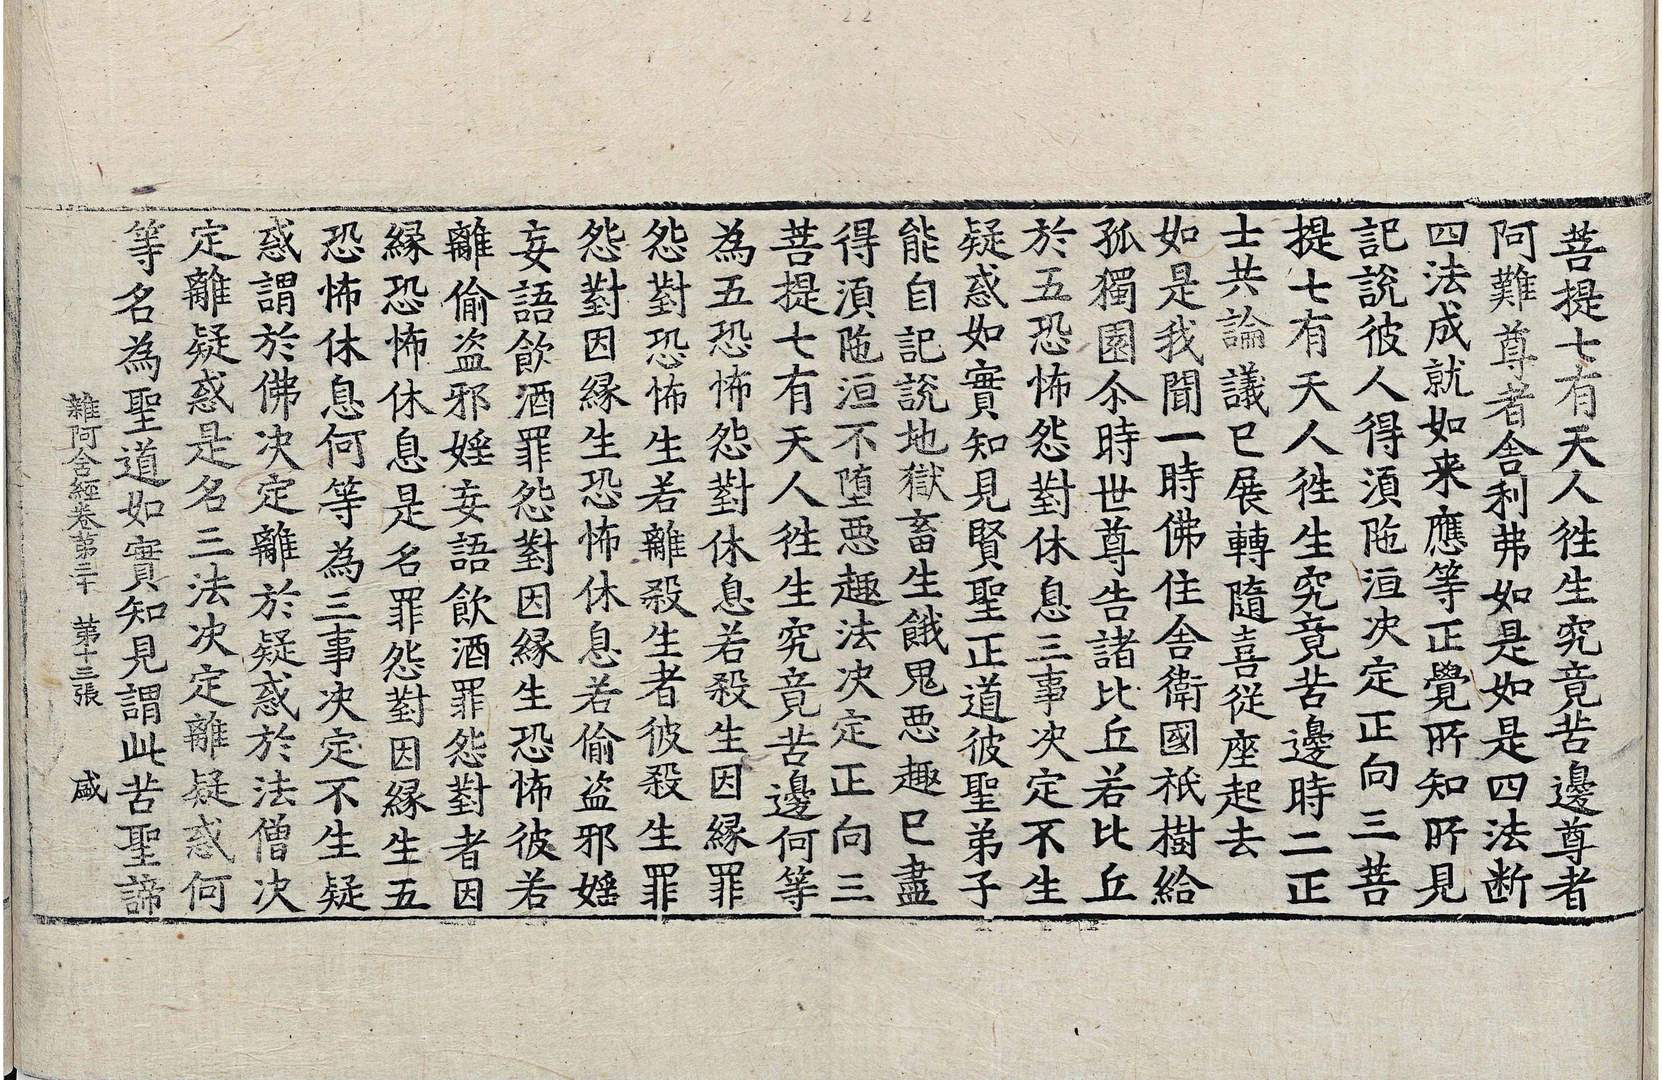 菩提七有天人徃生究竟苦邊尊者
阿難尊者舍利弗如是如是四法断
四法成就如来應等正覺所知所見
記說彼人得湏陁洹决定正向三菩
提七有天人徃生究竟苦邊時二正
士共論議已展轉隨喜從座起去
如是我聞一時佛住舍衛國祇樹給
孤獨園尒時世尊告諸比丘若比丘
於五恐怖怨對休息三事决定不生
疑惑如實知見賢聖正道彼聖弟子
能自記說地獄畜生餓鬼悪趣已盡
得湏陁洹不墮悪趣法决定正向三
菩提七有天人徃生究竟苦邊何等
為五恐怖怨對休息若殺生因縁罪
怨對恐怖生若離殺生者彼殺生罪
怨對因縁生恐怖休息若偷盗邪婬
妄語飲酒罪怨對因縁生恐怖彼若
離偷盗邪婬妄語飲酒罪怨對者因
縁恐怖休息是名罪怨對因縁生五
恐怖休息何等為三事决定不生疑
惑謂於佛决定離於疑惑於法僧决
定離疑惑是名三法决定離疑惑何
等名為聖道如實知見謂此苦聖諦
雜阿含經卷第三十 第十三張 咸